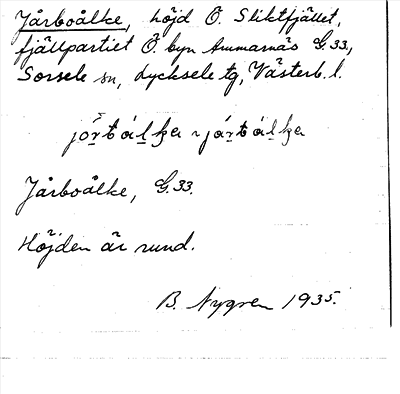 Jårboålke, höjd Ö. Sliktfjället,
fjällpartiet Ö. byn Ammarnäs G.33,
Sorsele sn, Lycksele tg, Västerb. l.
Jårboålke, G.33.
Höjden är rund.
B. Nygren 1935.